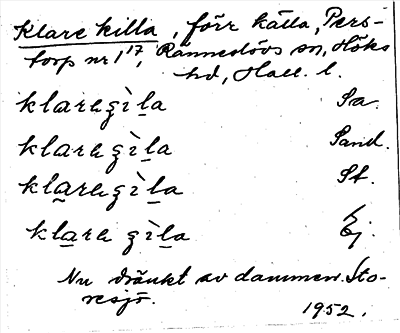 Klare killa, förr källa, Pers-
torp nr 1¹⁷, Ränneslövs sn, Höks
hd, Hall. l.
klaragìla Sa.
klaragìla Sand.
klaragìla St.
klaragìla Ej.
Nu dränkt av dammen Sto-
resjö.
1952.